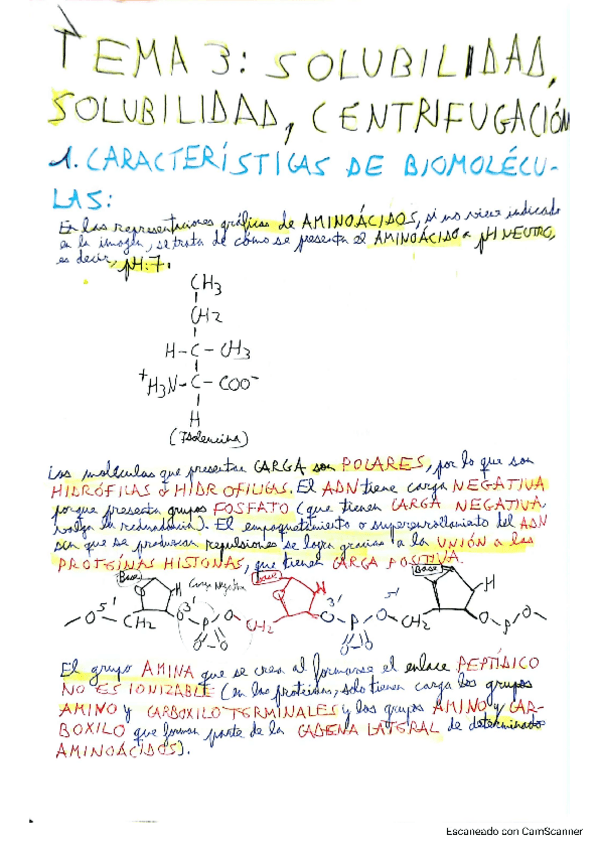 TEMA 3: SOLUBILIDAD,
SOLUBILIDAD, CENTRIFUGACIÓN
1. CARACTERÍSTICAS DE BIOMOLÉCU-
LAS:
En las representaciones gráficas de AMINOÁCIDOS, si no viene indicado
en la imagen, se trata de cómo se presenta el AMINOÁCIDO a pH NEUTRO,
es decir, pH: 7.
CH3
CH2
H-C-CH3
+H3N-C-COO-
H
(Isoleucina)
Las moléculas que presentan CARGA son POLARES, por lo que son
HIDRÓFILAS o HIDROFÍLICAS. El ADN tiene carga NEGATIVA
porque presenta grupos FOSFATO (que tienen CARGA NEGATIVA,
valga la redundancia). El empaquetamiento o superenrollamiento del ADN
sin que se produzcan repulsiones se logra gracias a la UNIÓN a las
PROTEÍNAS HISTONAS, que tienen CARGA POSITIVA.
Base H Carga Negativa Base H Base H
-O 5' CH2 3' O-P-O CH2 3' O-P-O 5' CH2 O-P-O-
O- O- O- O-
El grupo AMINA que se crea al formarse el enlace PEPTÍDICO
NO ES IONIZABLE (en las proteínas, solo tienen carga los grupos
AMINO y CARBOXILO TERMINALES y los grupos AMINO y CAR-
BOXILO que forman parte de la CADENA LATERAL de determinados
AMINOÁCIDOS).
Escaneado con CamScanner